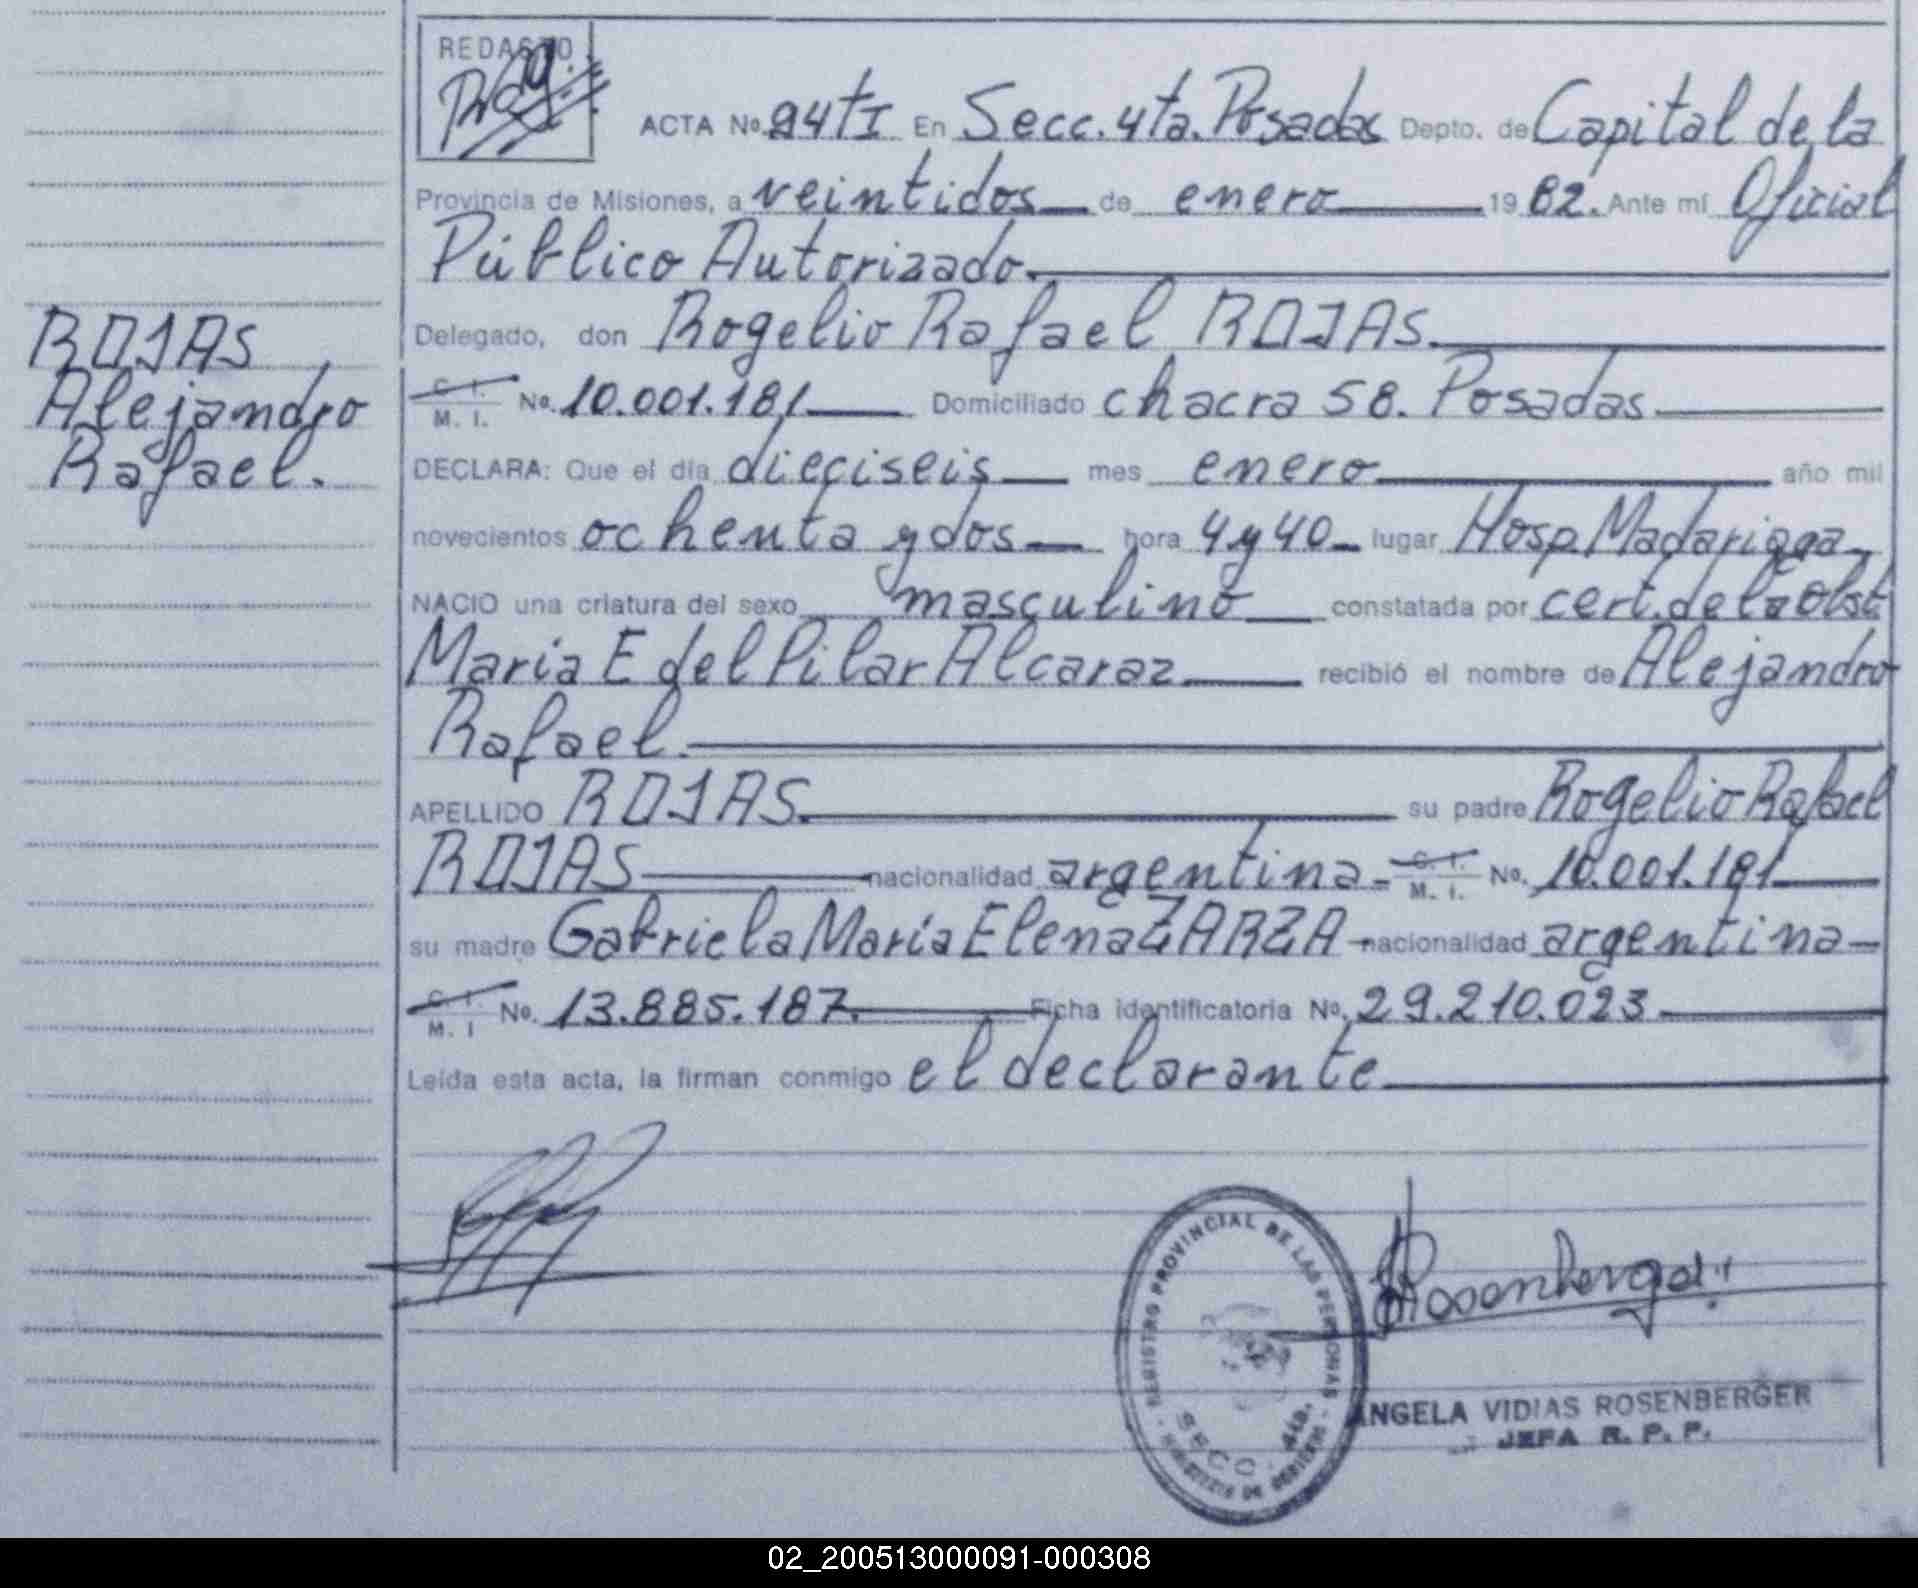 REDACTO
ACTA No. 94 tI En Secc. 4ta. Posadas Depto. de Capital de la
Provincia de Misiones, a veintidos de enero 19 82. Ante mí Oficial
Público Autorizado.
Delegado, don Rogelio Rafael ROJAS.
C. I. M. I. No. 10.001.181 Domiciliado chacra 58. Posadas
DECLARA: Que el día dieciseis mes enero año mil
novecientos ochenta y dos hora 4 y 40 lugar Hosp. Madariaga
NACIO una criatura del sexo masculino constatada por cert. de la Obst.
María E del Pilar Alcaraz recibió el nombre de Alejandro
Rafael.
APELLIDO ROJAS. su padre Rogelio Rafael
ROJAS nacionalidad argentina C. I. M. I. No. 10.001.181
su madre Gabriela María Elena ZARZA nacionalidad argentina
C. I. M. I No. 13.885.187. Ficha identificatoria No. 29.210.023
Leída esta acta, la firman conmigo el declarante
ROJAS
Alejandro
Rafael.
REGISTRO PROVINCIAL DE LAS PERSONAS
SECC. 4ta.
Rosenberger
ANGELA VIDIAS ROSENBERGER
JEFA R. P. P.
02_200513000091-000308